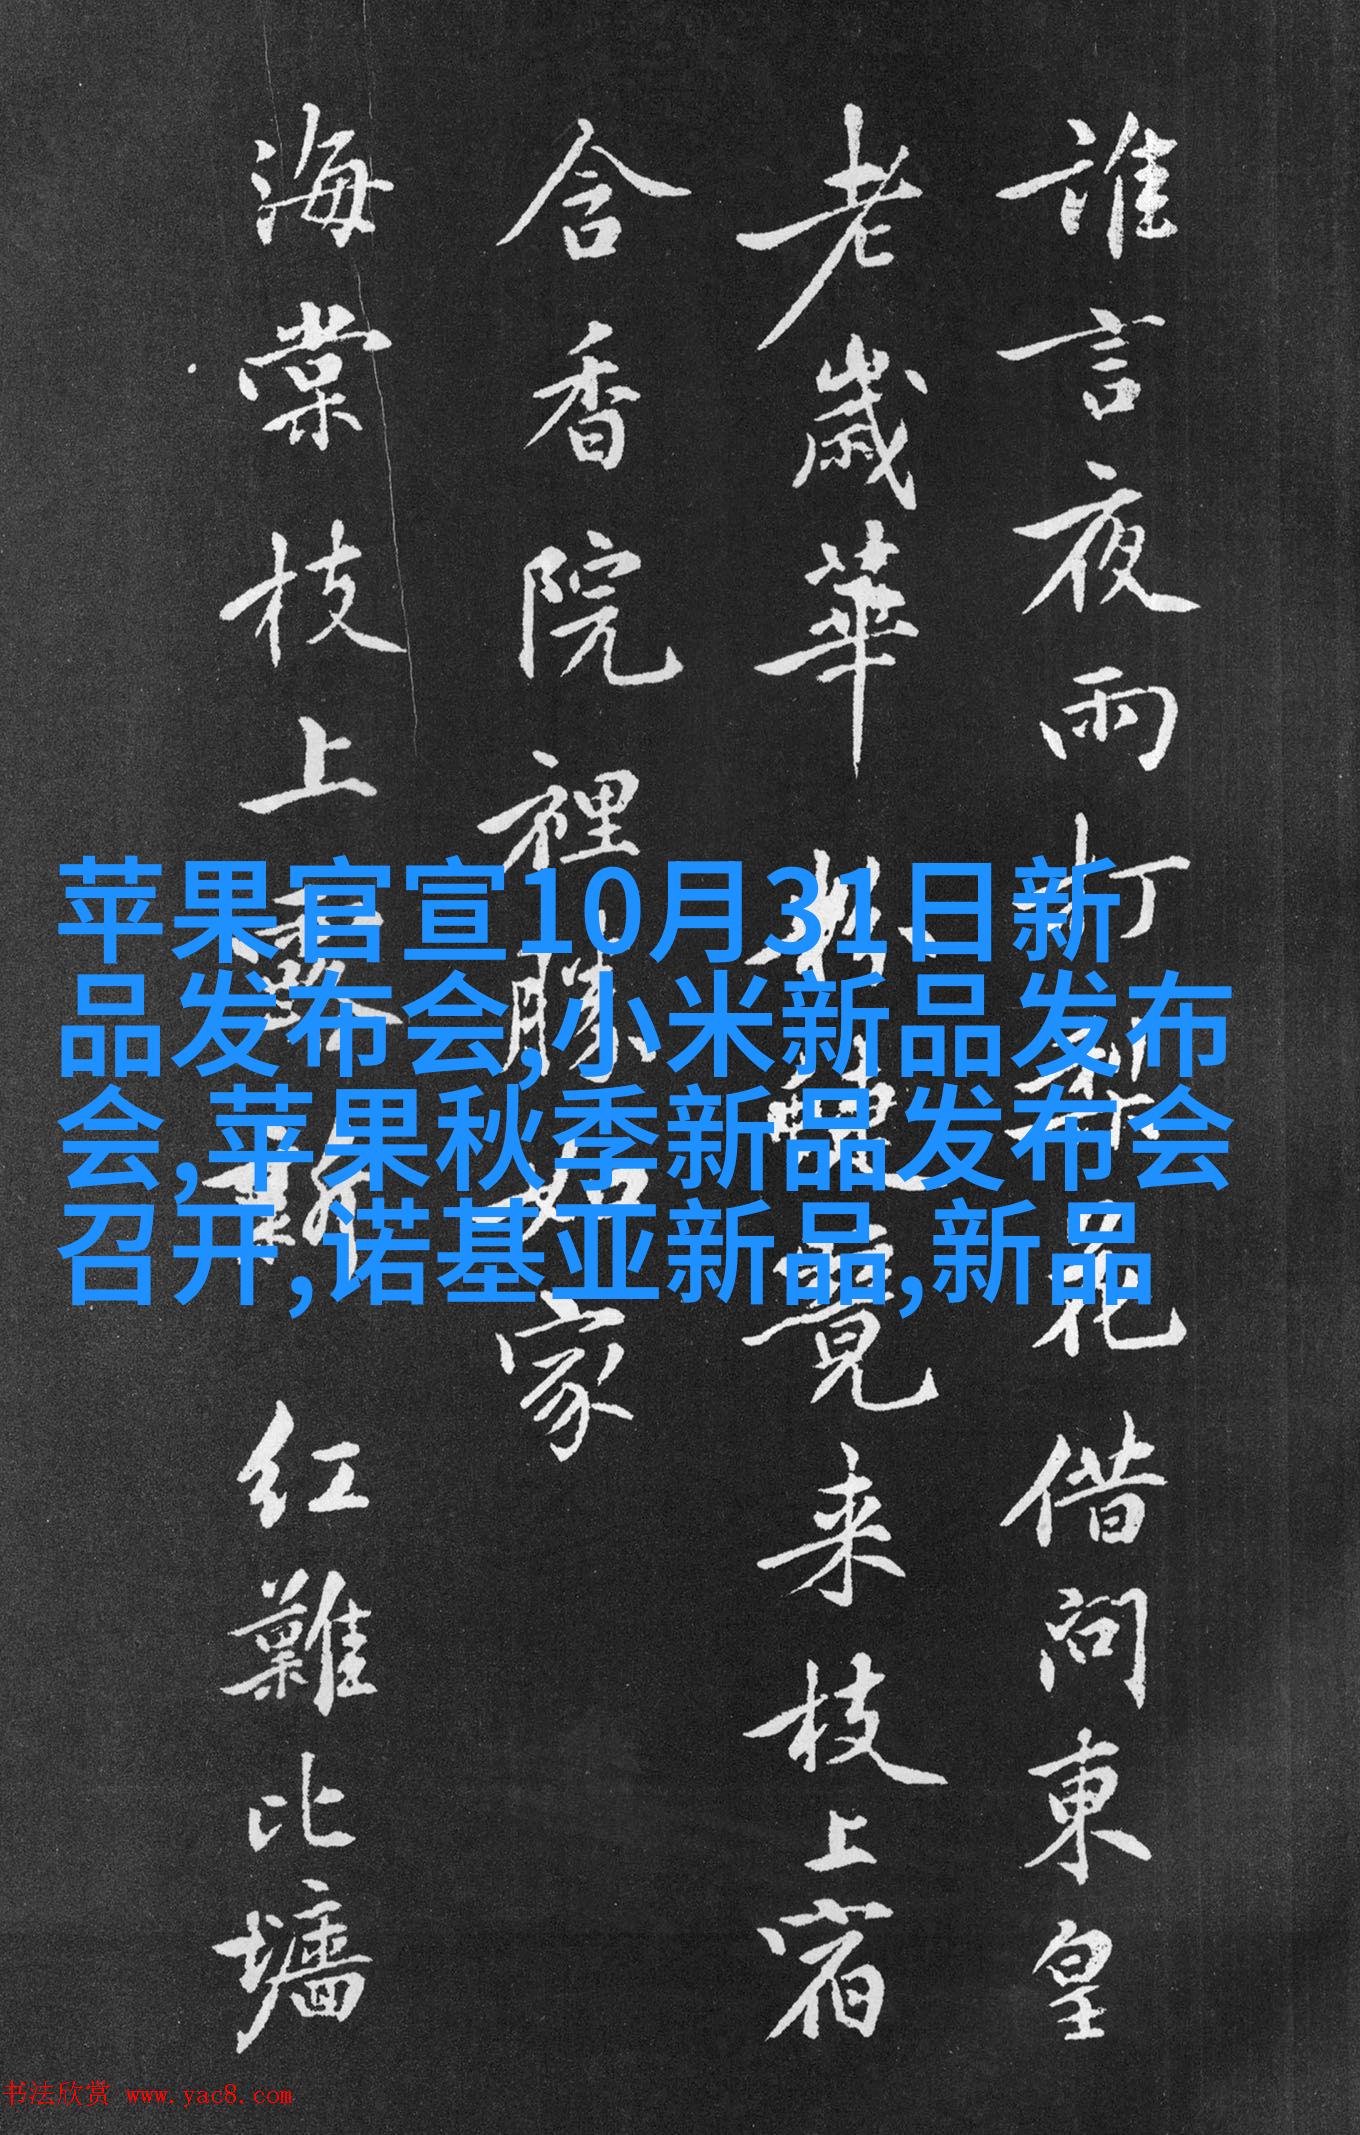 誰言夜雨打花借問東皇
老歲華来枝上宿
含香院裡勝如家
海棠枝上露红難比墻
苹果官宣10月31日新
品发布会,小米新品发布
会,苹果秋季新品发布会
召开,诺基亚新品,新品
书法欣赏 www.yac8.com